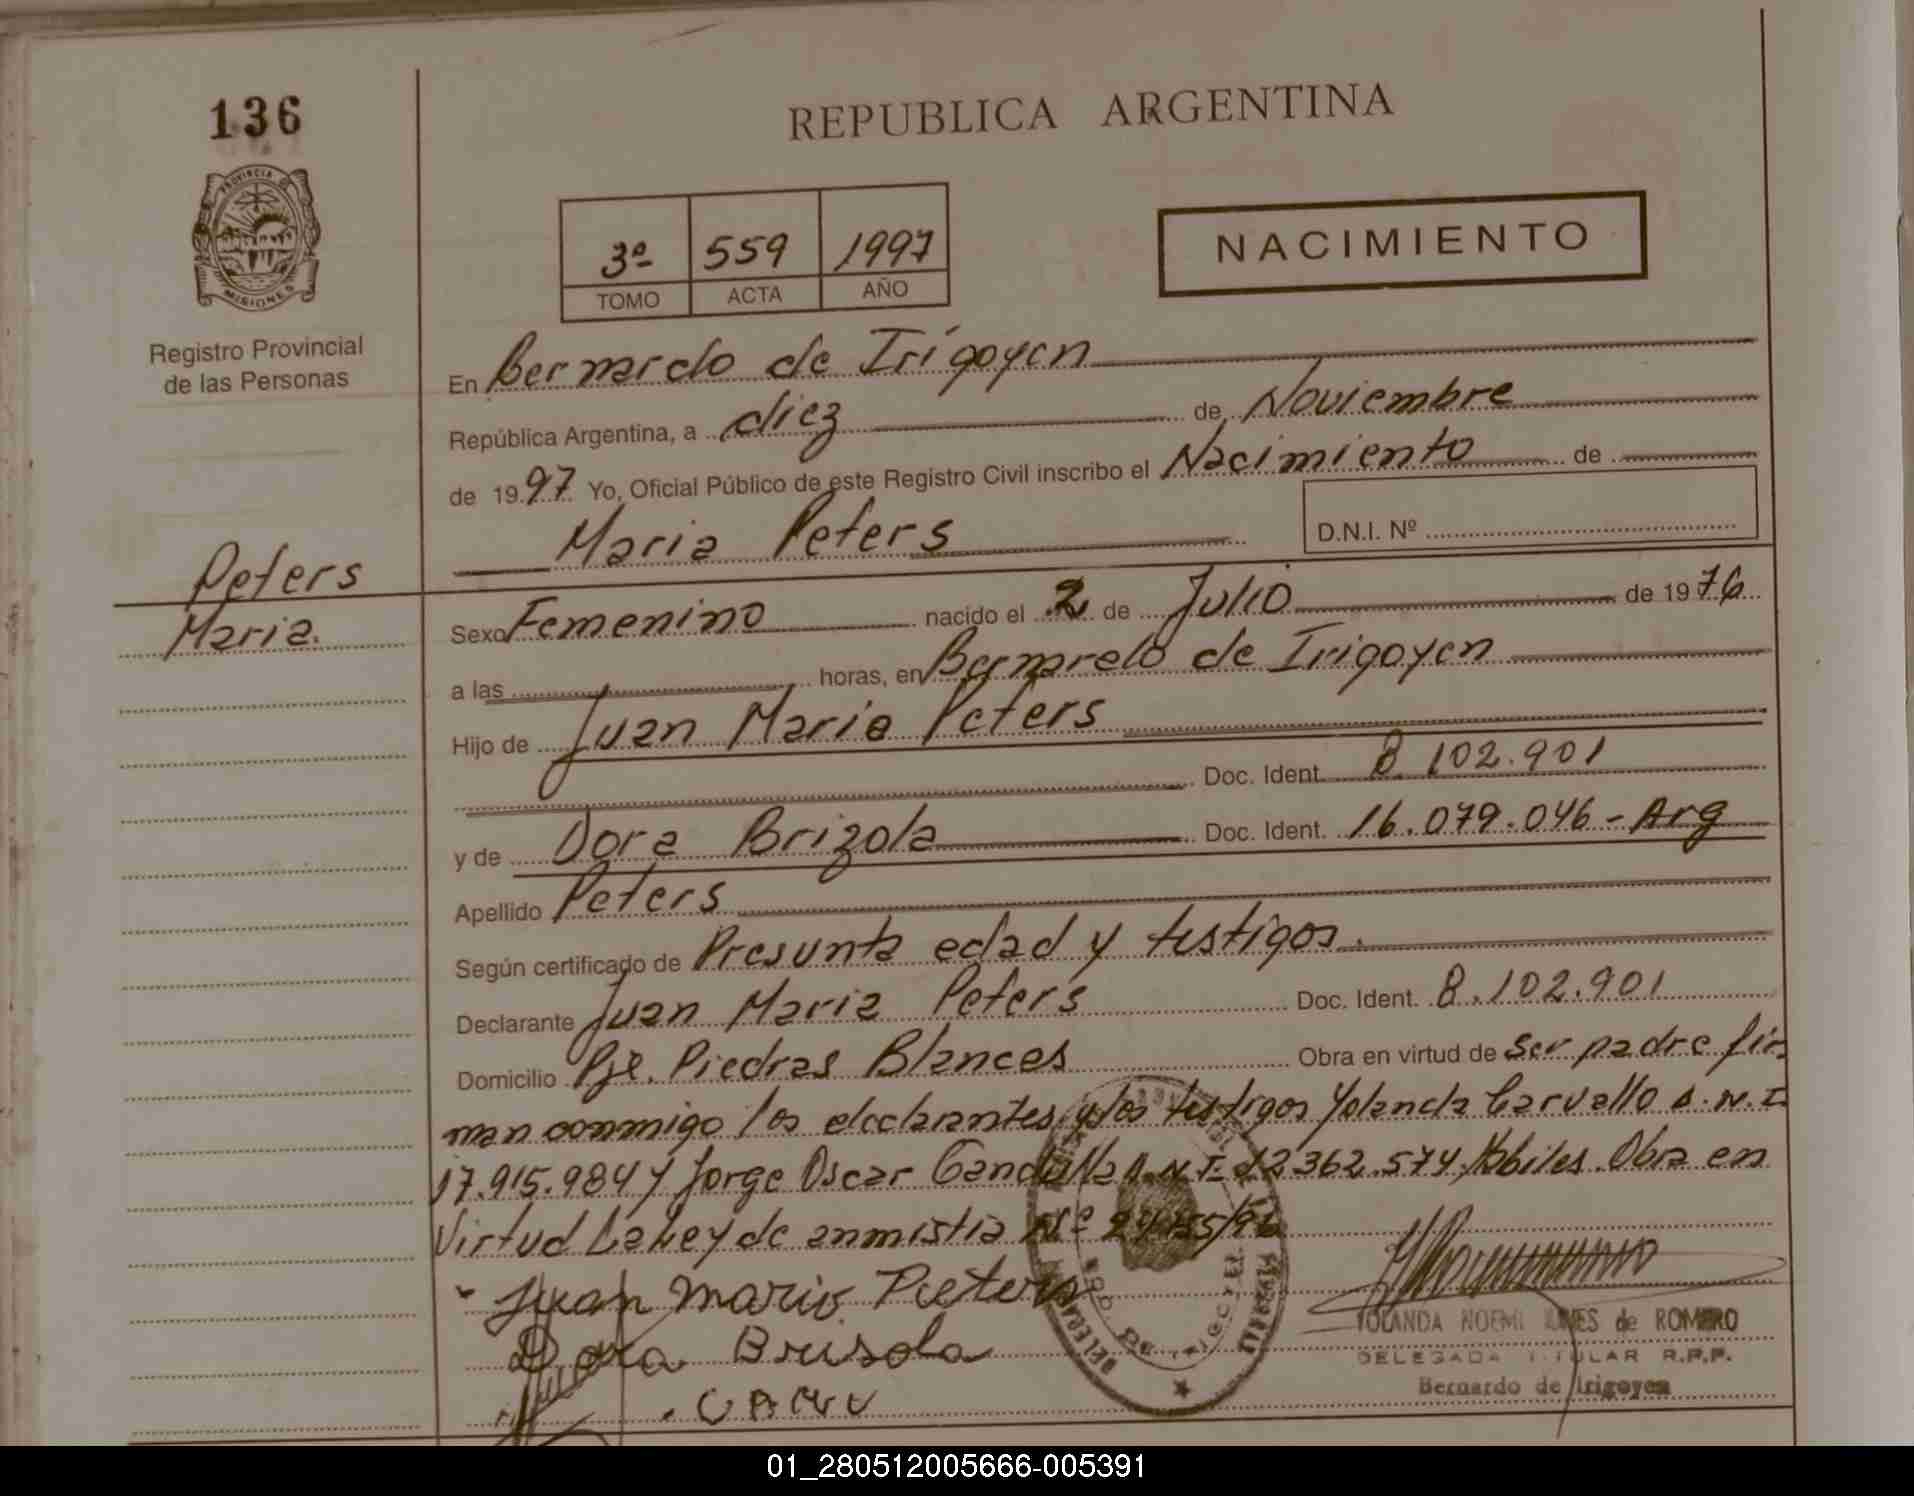 136
REPUBLICA ARGENTINA
PROVINCIA DE
MISIONES
3º 559 1997
TOMO ACTA AÑO
NACIMIENTO
Registro Provincial
de las Personas
En Bernardo de Irigoyen
República Argentina, a diez de Noviembre
de 1997 Yo, Oficial Público de este Registro Civil inscribo el Nacimiento de
Maria Peters D.N.I. Nº
Peters
Maria.
Sexo Femenino nacido el 2 de Julio de 1976
a las horas, en Bernardo de Irigoyen
Hijo de Juan Maria Peters
Doc. Ident. 8.102.901
y de Dora Brizola Doc. Ident. 16.079.046-Arg
Apellido Peters
Según certificado de Presunta edad y testigos.
Declarante Juan Maria Peters Doc. Ident. 8.102.901
Domicilio Pje. Piedras Blances Obra en virtud de ser padre fir
man conmigo los declarantes y los testigos Yolanda Carvallo D.N.I.
17.915.984 y Jorge Oscar D.N.I. 12362.574, Habiles. Obra en
Virtud La Ley de anmistia Nº
Juan mario Pieters
Dora Brisola
YOLANDA NOEMI de ROMERO
DELEGADA TITULAR R.P.P.
Bernardo de Irigoyen
01_280512005666-005391